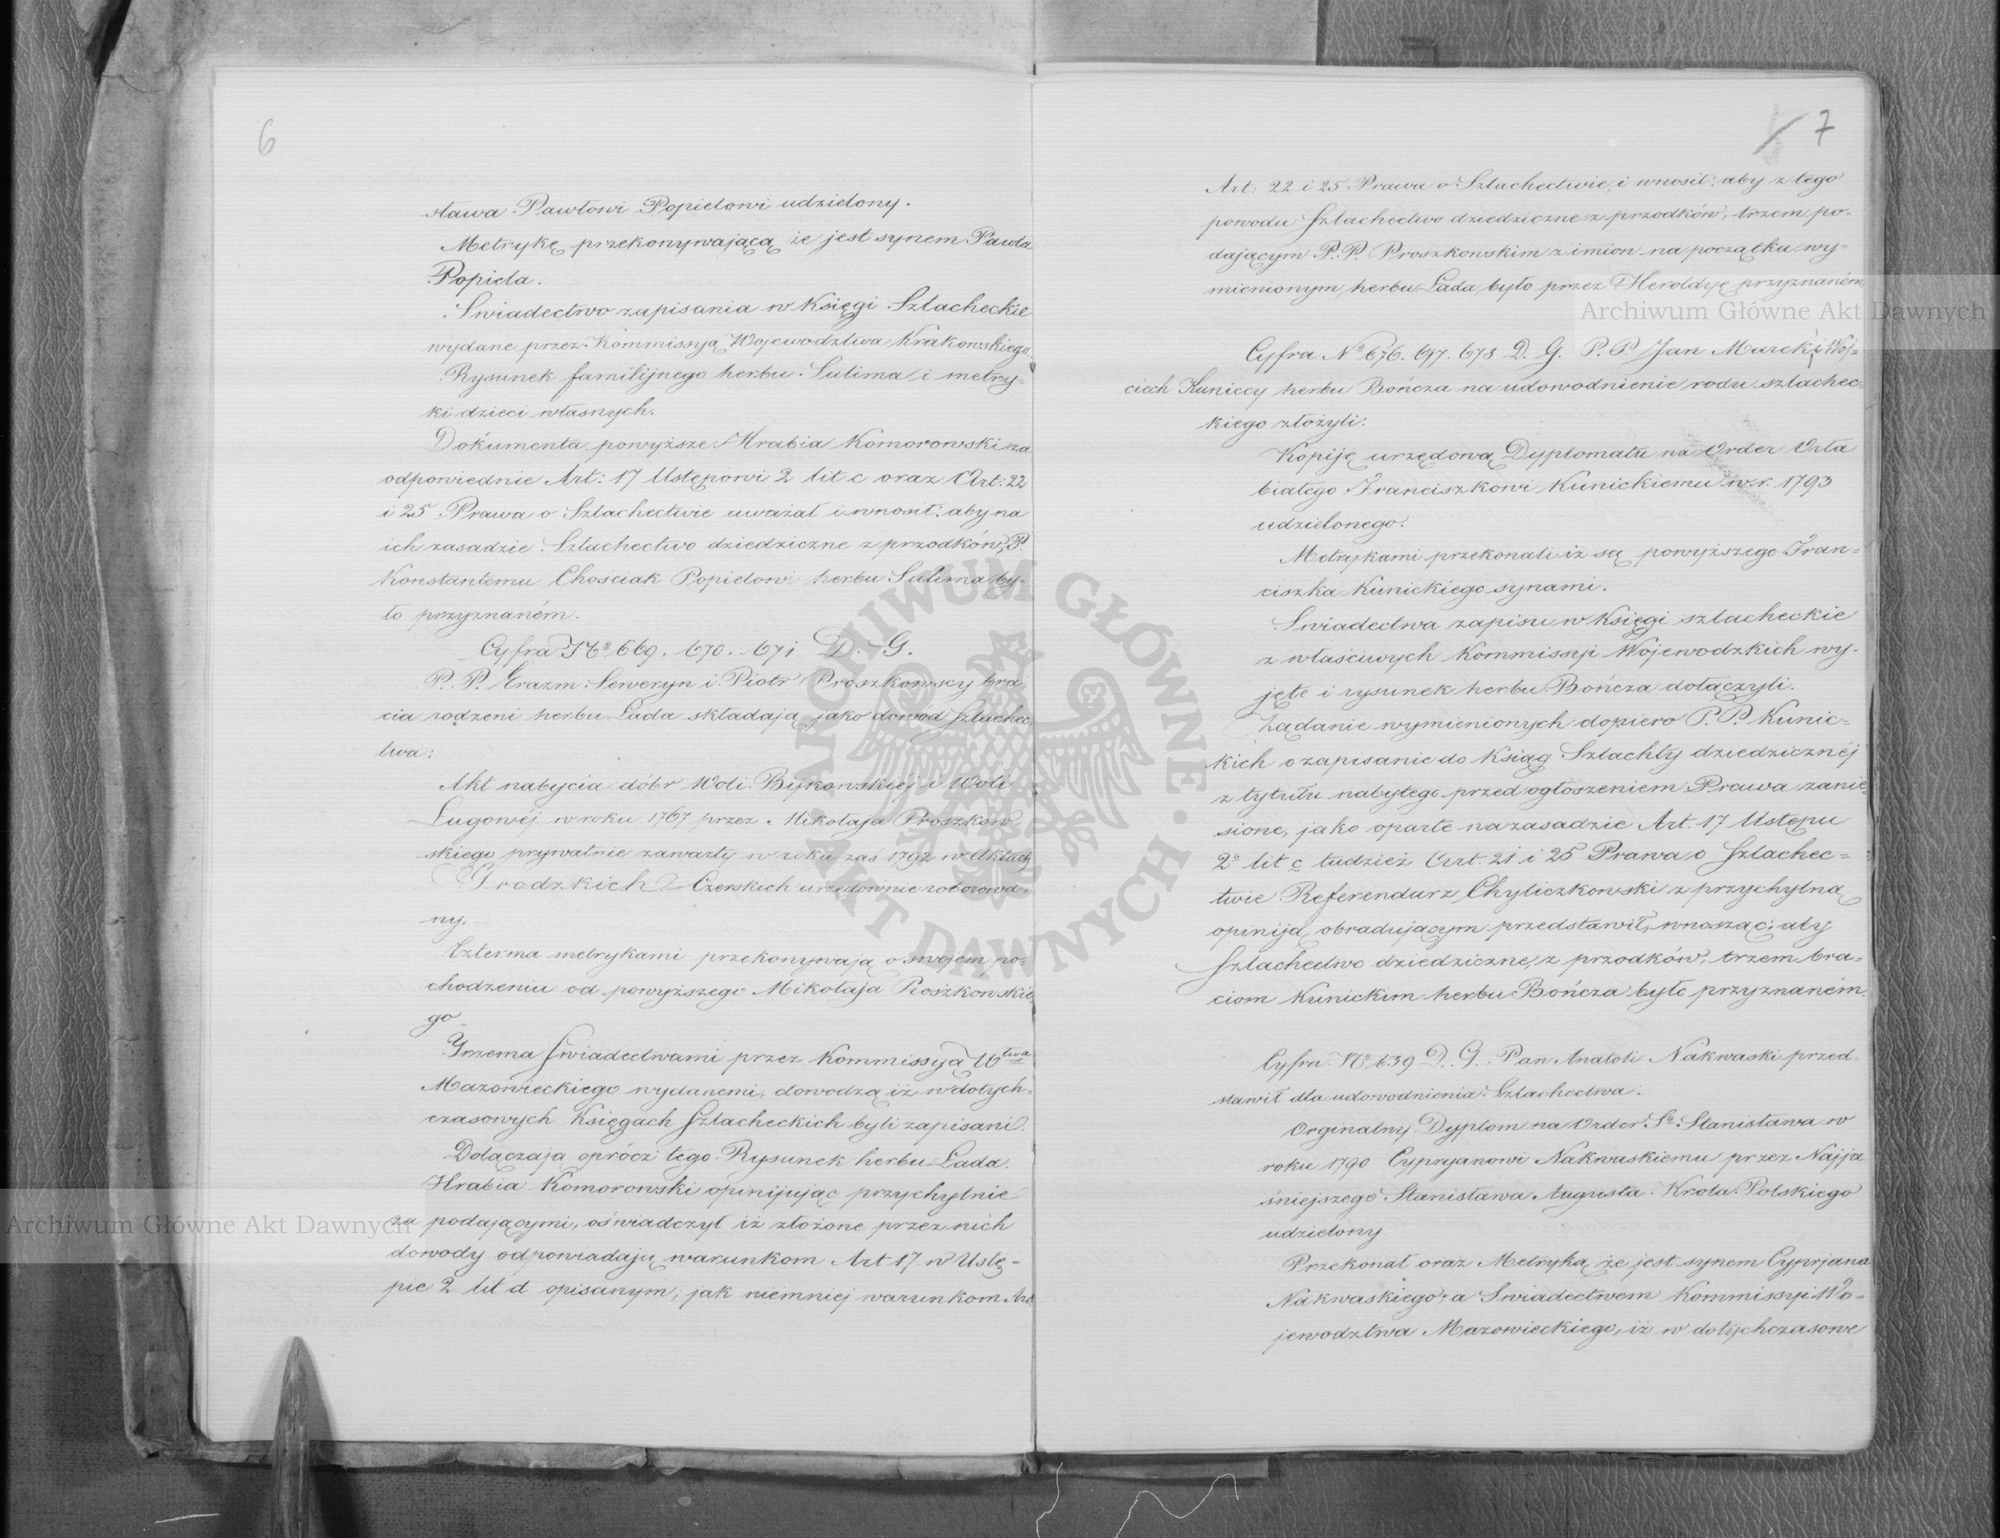 6
sława Pawłowi Popielowi udzielony.
Metrykę przekonywającą że jest synem Pawła
Popiela.
Świadectwo zapisania w Księgi Szlacheckie
wydane przez Kommissyą Województwa Krakowskiego.
Rysunek familijnego herbu Sulima i metry-
ki dzieci własnych.
Dokumenta powyższe Hrabia Komorowski za
odpowiednie Art: 17 Ustępowi 2 lit c oraz Art: 22
i 25 Prawa o Szlachectwie uważał i wnosił: aby na
ich zasadzie Szlachectwo dziedziczne z przodków, P.
Konstantemu Chościak Popielowi herbu Sulima by-
ło przyznaném.
Cyfra No 669. 670. 671 D. G.
P. P. Erazm Seweryn i Piotr Proszkowscy bra-
cia rodzeni herbu Łada składają jako dowód Szlachec-
twa:
Akt nabycia dóbr Woli Bykowskiej i Woli
Ługowéj w roku 1767 przez Mikołaja Proszkow-
skiego prywatnie zawarty w roku zaś 1792 w Aktach
Grodzkich Czerskich urzędownie roborowa-
ny.
Czterma metrykami przekonywają o swojem po-
chodzeniu od powyższego Mikołaja Proszkowskie
go
Trzema Świadectwami przez Kommissyą Wtwa
Mazowieckiego wydanemi, dowodzą iż w dotych-
czasowych Księgach Szlacheckich byli zapisani.
Dołączają oprócz tego Rysunek herbu Łada.
Hrabia Komorowski opinijując przychylnie
za podającymi, oświadczył iż złożone przez nich
dowody odpowiadają warunkom Art 17 w Ustę-
pie 2 lit d opisanym, jak niemniej warunkom Art
7
Art: 22 i 25 Prawa o Szlachectwie, i wnosił: aby z tego
powodu Szlachectwo dziedziczne z przodków, trzem po-
dającym P. P. Proszkowskim z imion na początku wy-
mienionym, herbu Łada, było przez Heroldyę przyznaném.
Cyfra No 676. 677. 678 D. G. P. P. Jan Marek i Woj-
ciech Kuniccy herbu Bończa na udowodnienie rodu szlachec-
kiego złożyli:
Kopiję urzędową Dyplomatu na Order Orła
białego Franciszkowi Kunickiemu w r. 1793
udzielonego.
Metrykami przekonali iż są powyższego Fran-
ciszka Kunickiego synami.
Świadectwa zapisu w Księgi szlacheckie
z właściwych Kommissyi Wojewodzkich wy-
jęte i rysunek herbu Bończa dołączyli.
Żądanie wymienionych dopiero P. P. Kunic-
kich o zapisanie do Ksiąg Szlachty dziedzicznéj
z tytułu nabytego przed ogłoszeniem Prawa zanie-
sione, jako oparte na zasadzie Art. 17 Ustępu
2o lit c tudzież Art. 21 i 25 Prawa o Szlachec-
twie Referendarz Chyliczkowski z przychylną
opiniją obradującym przedstawił, wnosząc: aby
Szlachectwo dziedziczne, z przodków, trzem bra-
ciom Kunickim herbu Bończa było przyznaném.
Cyfra No 639 D. G. Pan Anatoli Nakwaski przed-
stawił dla udowodnienia Szlachectwa:
Orginalny Dyplom na Order So Stanisława w
roku 1790 Cypryjanowi Nakwaskiemu przez Najja
śniejszego Stanisława Augusta Króla Polskiego
udzielony
Przekonał oraz Metryką że jest synem Cyprjana
Nakwaskiego; a Świadectwem Kommissyi Wo-
jewodztwa Mazowieckiego, iż w dotychczasowe
Archiwum Główne Akt Dawnych
Archiwum Główne Akt Dawnych
ARCHIWUM GŁÓWNE · AKT DAWNYCH ·